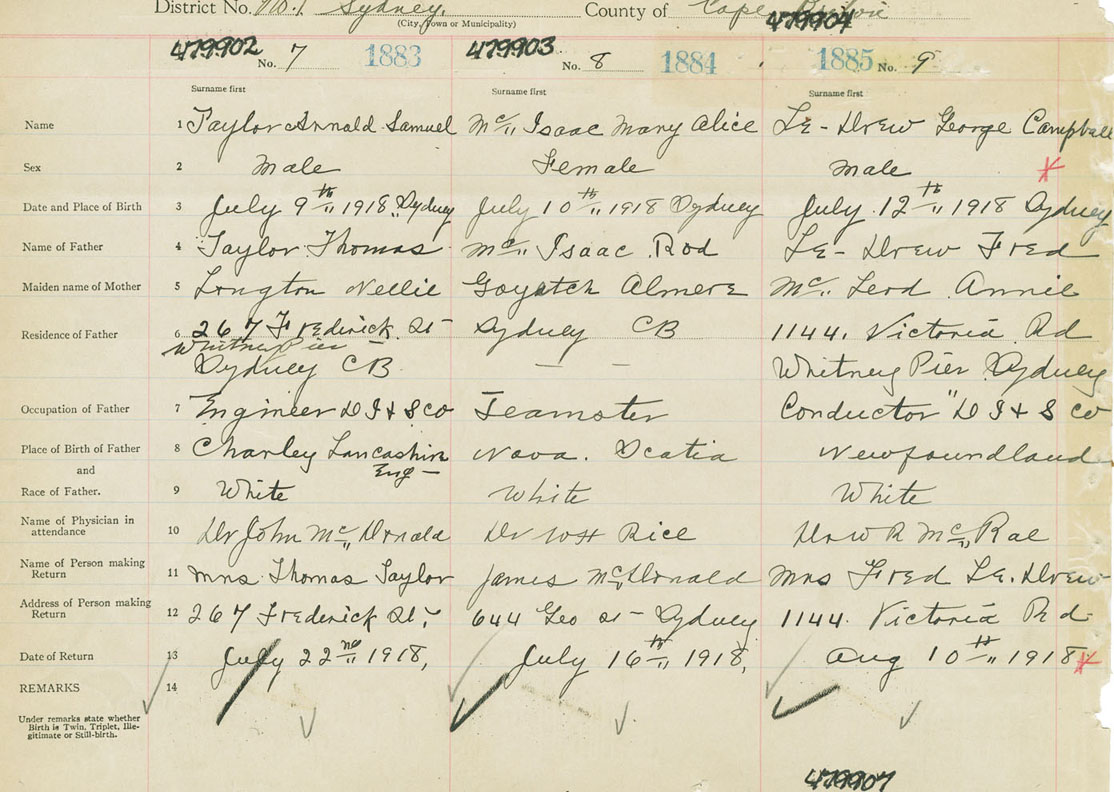 District No. No. 1 Sydney. County of Cape Breton
(City, Town or Municipality)
479904
479902 No. 7 1883 479903 No. 8 1884 1885 No. 9
Surname first Surname first Surname first
Name 1 Taylor Arnald Samuel Mc Isaac Mary Alice Le-Drew George Campbell
Sex 2 Male Female Male
Date and Place of Birth 3 July 9th 1918 Sydney July 10th 1918 Sydney July 12th 1918 Sydney
Name of Father 4 Taylor Thomas Mc Isaac Rod Le-Drew Fred
Maiden name of Mother 5 Longton Nellie Almere Mc Leod Annie
Residence of Father 6 267 Frederick St Sydney CB 1144. Victoria Rd
Whitney Pier
Sydney CB — — Whitney Pier Sydney
Occupation of Father 7 Engineer D I & S Co Teamster Conductor D I & S Co
Place of Birth of Father 8 Charley Lancashire Nova. Scatia Newfoundland
and Eng —
Race of Father. 9 White White White
Name of Physician in
attendance 10 Dr John Mc Donald Dr W H Rice Dr W R Mc Rae
Name of Person making
Return 11 Mrs. Thomas Taylor James McDonald Mrs Fred Le. Drew
Address of Person making
Return 12 267 Frederick St. 644 Geo St — Sydney 1144. Victoria Rd
Date of Return 13 July 22nd 1918, July 16th 1918, Aug 10th 1918
REMARKS 14
Under remarks state whether
Birth is Twin, Triplet, Ille-
gitimate or Still-birth.
479907